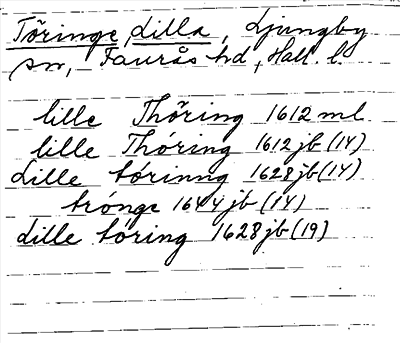 Töringe, Lilla, Ljungby
sn, Faurås hd, Hall. l.
lille Thöring 1612 ml
lille Thóring 1612 jb (14)
Lille tórinng 1628 jb (14)
trónge 1644 jb (14)
Lille tóring 1628 jb (19)